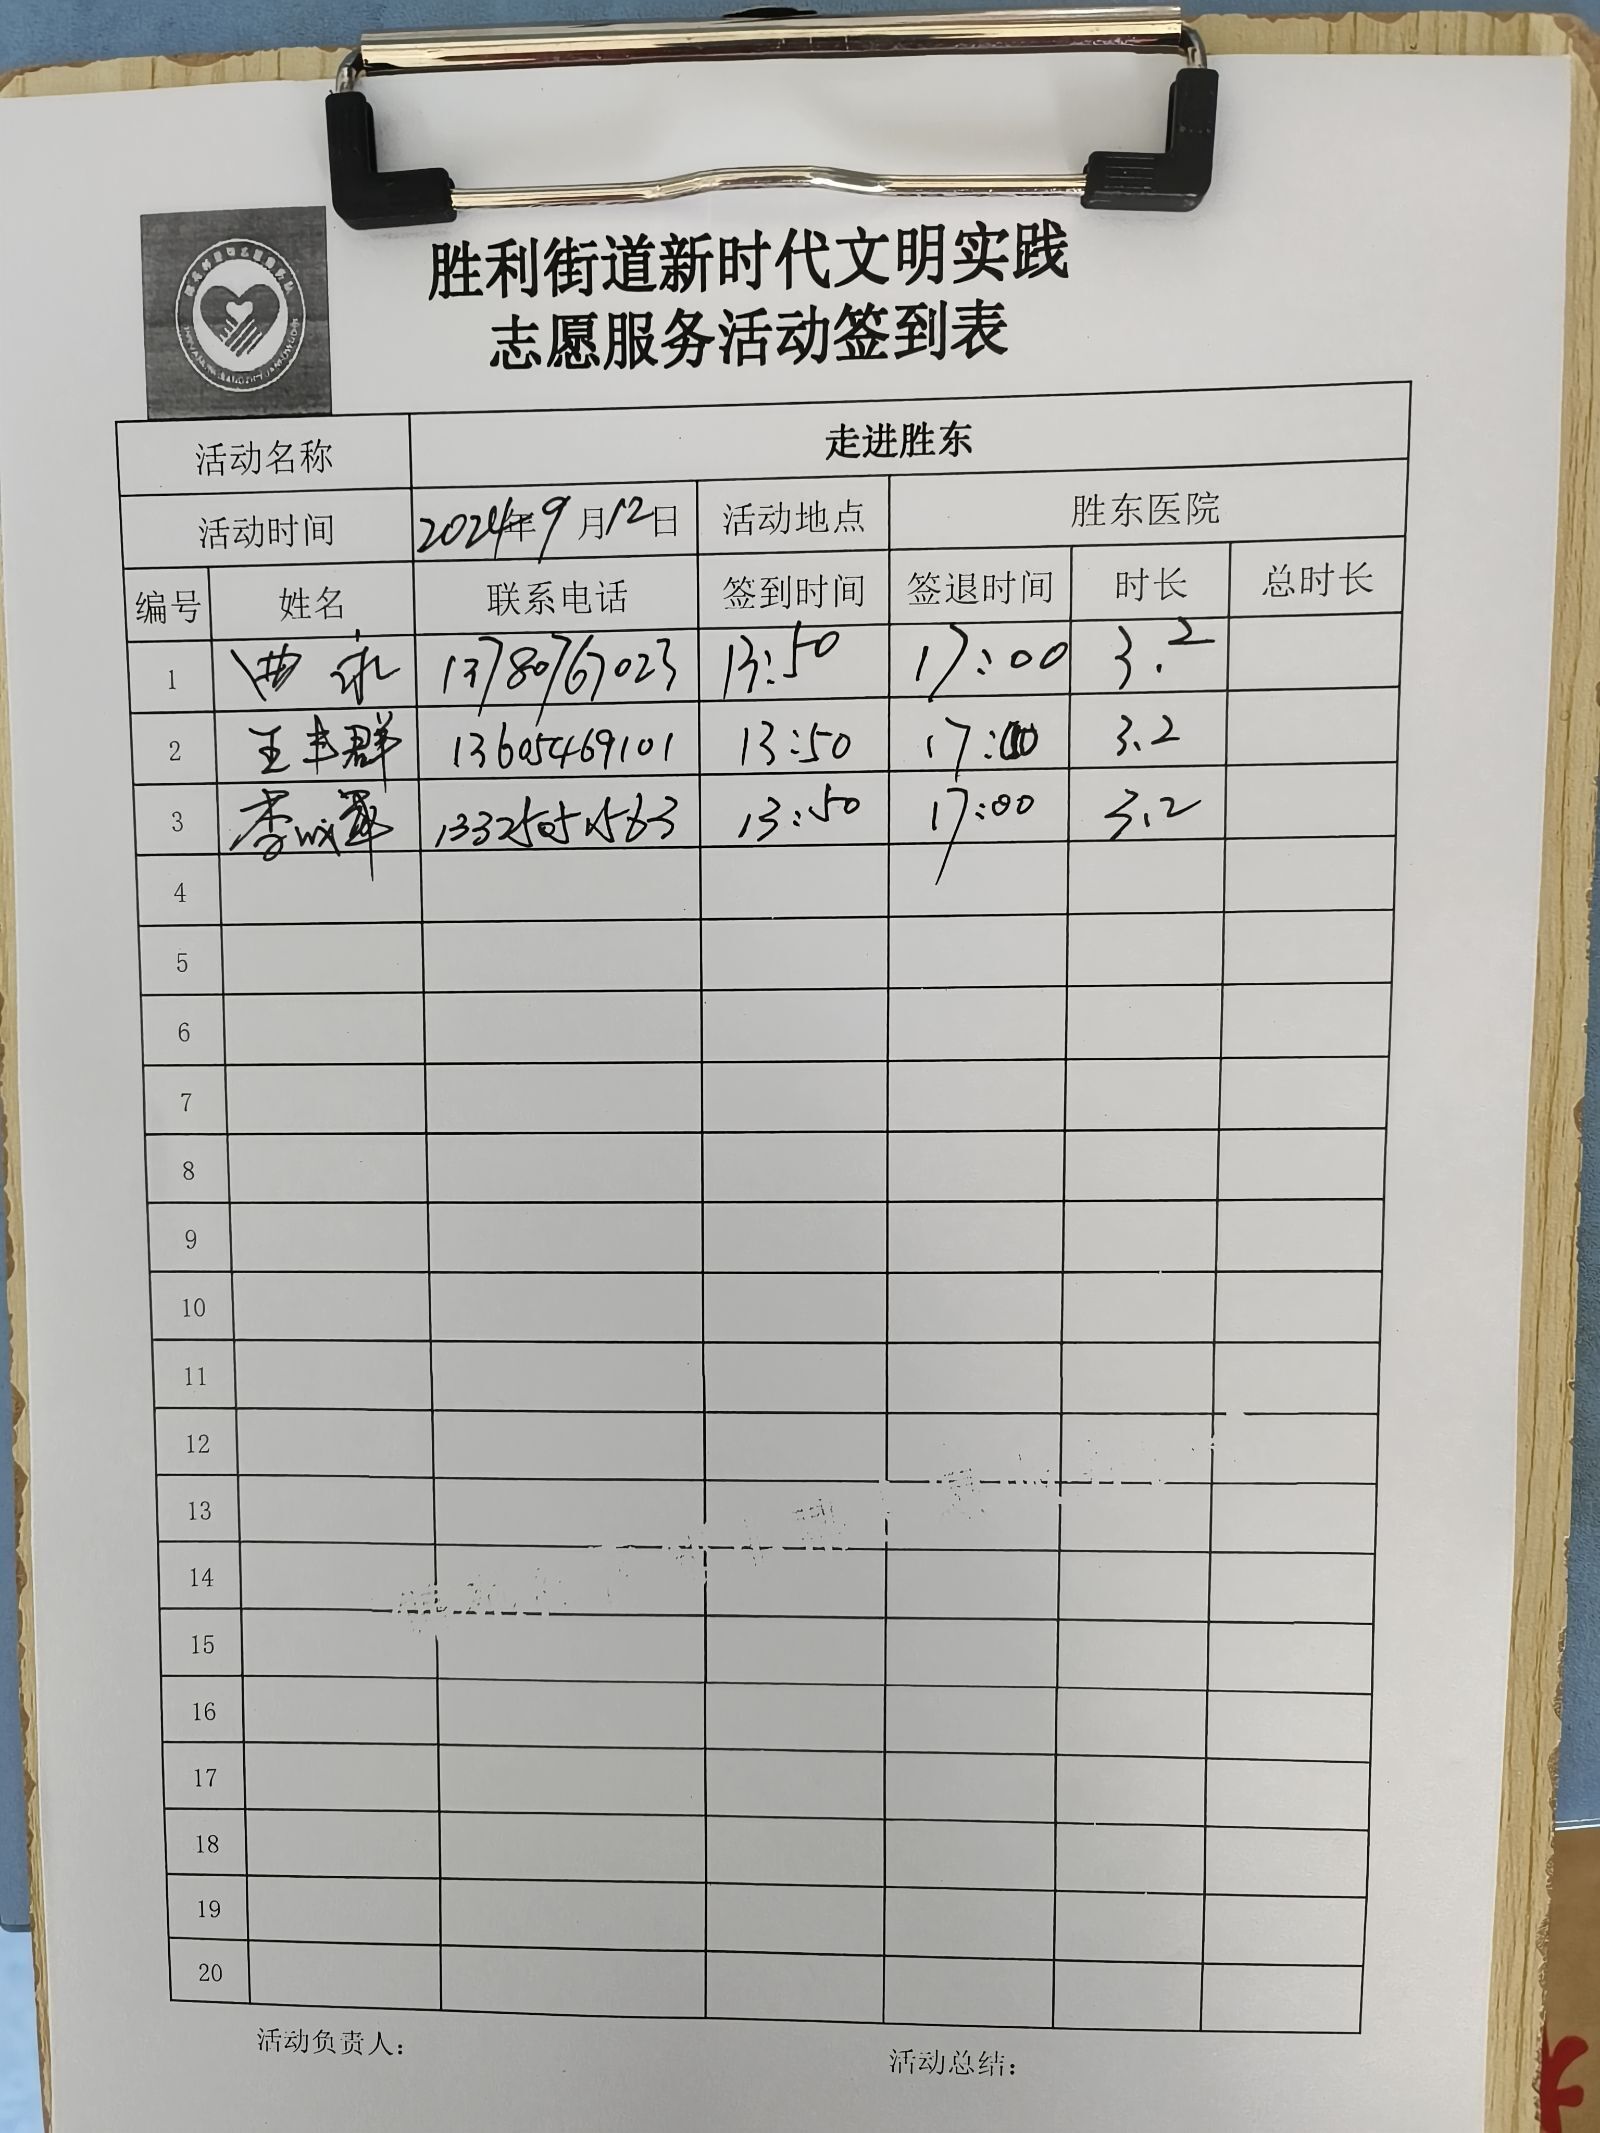 胜利街道新时代文明实践
志愿服务活动签到表
活动名称 走进胜东
活动时间 2024年9月12日 活动地点 胜东医院
编号 姓名 联系电话 签到时间 签退时间 时长 总时长
1 13780767023 13:50 17:00 3.2
2 王丰群 13605469101 13:50 17:00 3.2
3 李 13325051563 13:50 17:00 3.2
4
5
6
7
8
9
10
11
12
13
14
15
16
17
18
19
20
活动负责人： 活动总结：